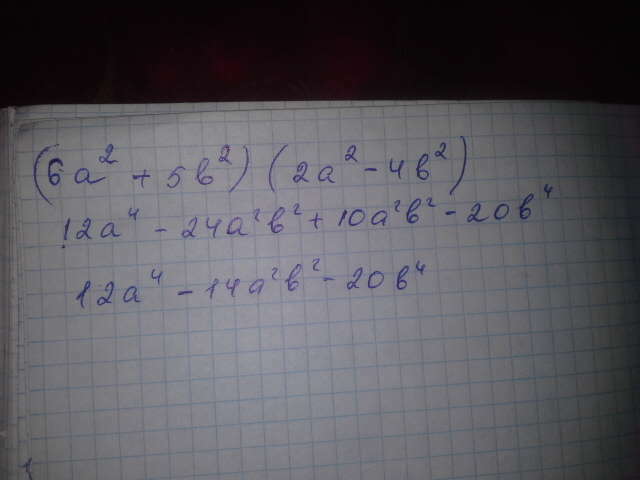 (6a² + 5в²) (2a² - 4в²)
12a⁴ - 24a²в² + 10a²в² - 20в⁴
12a⁴ - 14a²в² - 20в⁴